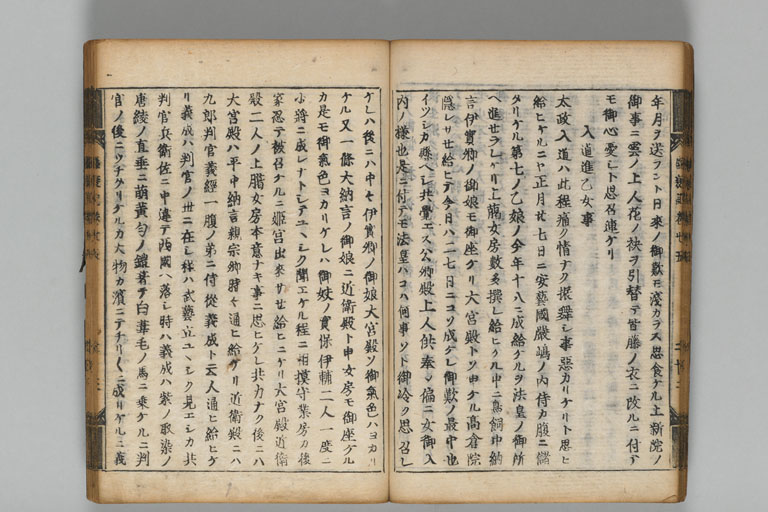 年月ヲ送ラント日来ノ御歎モ浅カラス思食ケル上新院ノ
御事ニ雲ノ上人花ノ袂ヲ引替テ皆藤ノ衣ニ改ルニ付テ
モ御心憂シト思召連ケリ
入道進乙女事
太政入道ハ此程痛ク情ナク振舞シ事悪カリケリト思ヒ
給ヒケルニヤ正月廿七日ニ安藝國嚴嶋ノ内侍カ腹ニ儲
タリケル第七ノ乙娘ノ今年十八ニ成給ケルヲ法皇ノ御所
ヘ進セラレケリ上臈女房数多撰レ給ヒケル中ニ鳥飼中納
言伊實卿ノ御娘モ御座ケリ大宮殿トソ申ケル高倉院
隠レサセ給ヒテ今日ハ二七日ニコソ成ケレ御歎ノ最中也
イツシカ殊ヘシ共覺エス公卿殿上人供奉シ偏ニ女御入
内ノ様也是ニ付テモ法皇ハコハ何事ソト御冷ク思召シ
ケレハ後ニハ中モ伊實卿ノ御娘大宮殿ソ御氣色ハヨカリ
ケル又一條大納言ノ御娘ニ近衛殿ト申女房モ御座ケル
カ是モ御氣色ヨカリケレハ御妓ノ實保伊輔二人一度ニ
少将ニ成レナトシテユヽシク聞エケル程ニ相摸守業房カ後
家忍テ被召ケルニ姫宮出来サセ給ヒニケリ大宮殿近衛
殿二人ノ上臈女房本意ナキ事ニ思ヒケレ共力ナク後ニハ
大宮殿ハ平中納言親宗卿時々通ヒ給ケリ近衛殿ニハ
九郎判官義經一腹ノ弟ニ侍従義成ト云人通ヒ給ヒケ
リ義成ハ判官ノ世ニ在シ程ハ武藝立ユヽシク見エシカ共
判官兵衛佐ニ中違テ西國ヘ落シ時ハ義成ハ紫ノ取染ノ
唐綾ノ直垂ニ萌黄匂ノ鎧著テ白葦毛ノ馬ニ乗ケルニ判
官ノ後ニウチタリケルカ大物カ濱ニテチリ〱ニ成リケルニ義